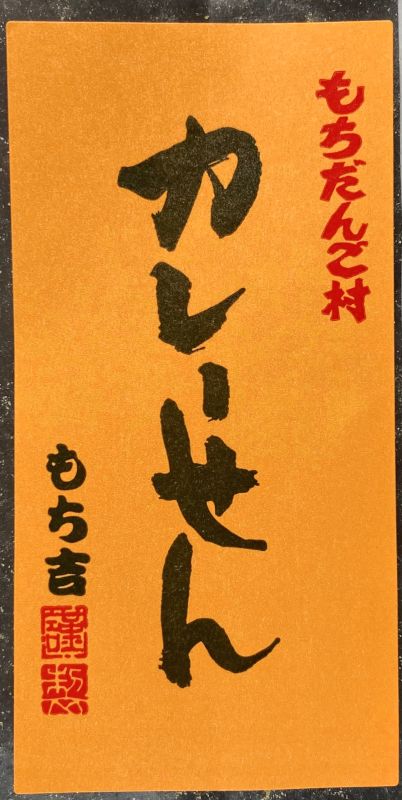 もちだんご村
カレーせん
もち吉
謹製